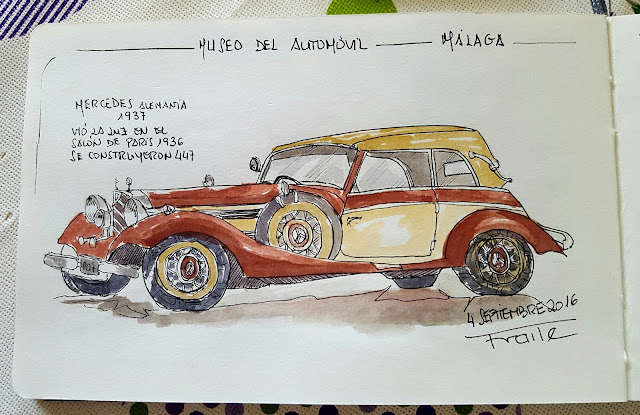 MUSEO DEL AUTOMÓVIL MÁLAGA
MERCEDES ALEMANIA
1937
VIÓ LA LUZ EN EL
SALÓN DE PARÍS 1936
SE CONSTRUYERON 447
4 SEPTIEMBRE 2016
Fraile